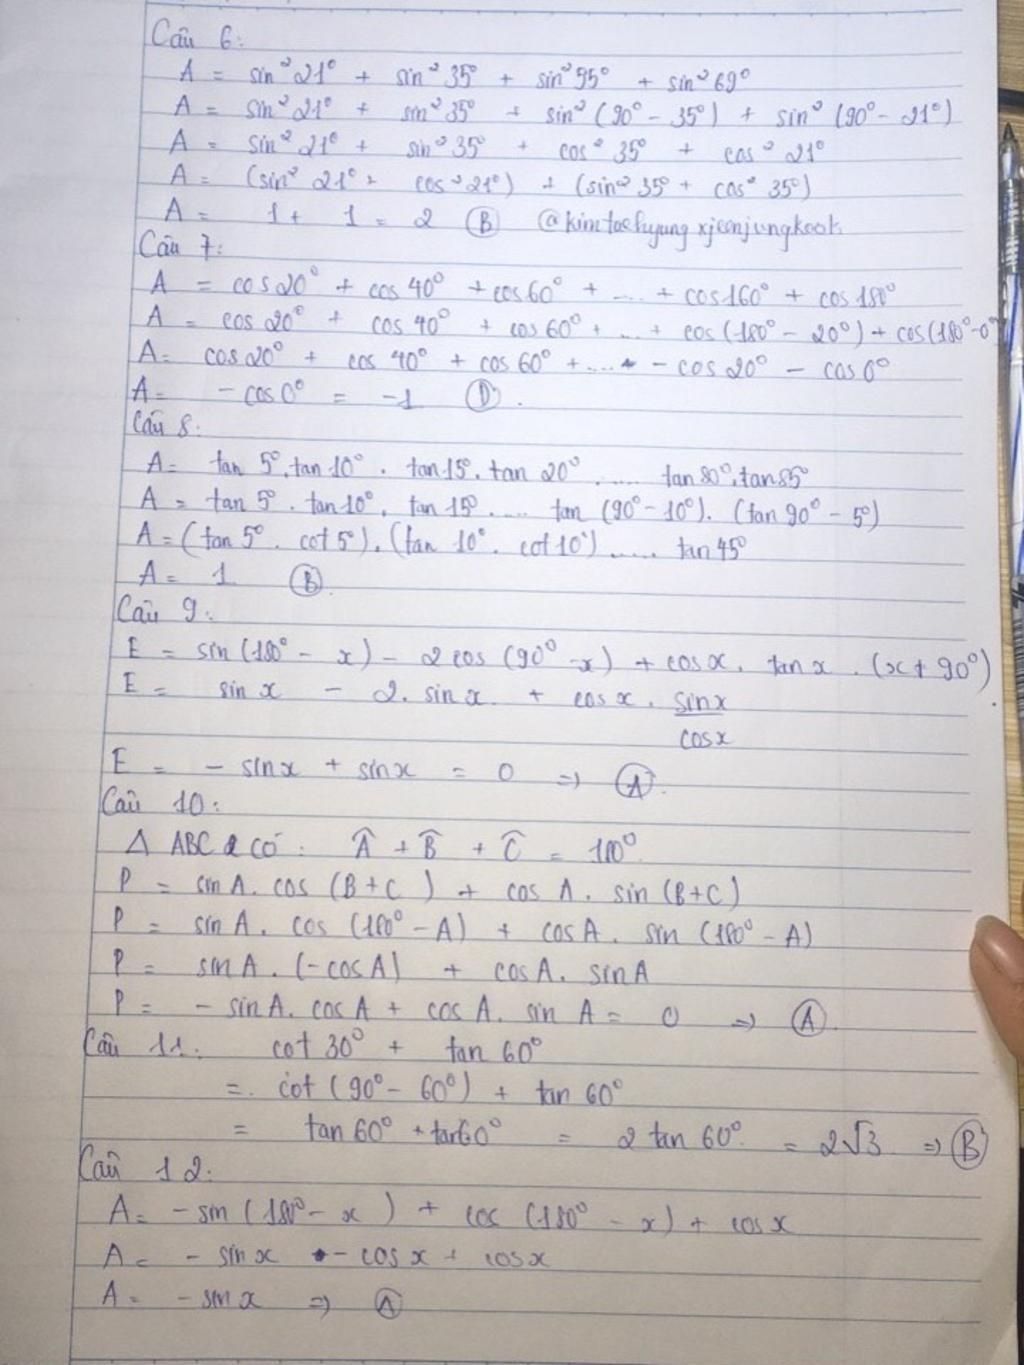 Câu 6:
A = sin²21° + sin²35° + sin²55° + sin²69°
A = sin²21° + sin²35° + sin²(90° - 35°) + sin²(90° - 21°)
A = sin²21° + sin²35° + cos²35° + cos²21°
A = (sin²21° + cos²21°) + (sin²35° + cos²35°)
A = 1 + 1 = 2 Ⓑ @kimtaehyungxjeonjungkook
Câu 7:
A = cos20° + cos40° + cos60° + ... + cos160° + cos180°
A = cos20° + cos40° + cos60° + ... + cos(180° - 20°) + cos(180° - 0°)
A = cos20° + cos40° + cos60° + .... - cos20° - cos0°
A = - cos0° = -1 Ⓓ.
Câu 8:
A = tan 5°.tan10° . tan15°. tan 20° ..... tan80°.tan85°
A = tan5° . tan10° . tan15° .... tan (90° - 10°). (tan90° - 5°)
A = (tan5° . cot5°).(tan 10° . cot10°) ..... tan45°
A = 1 Ⓑ
Câu 9:
E = sin(180° - x) - 2cos(90° - x) + cosx . tanx . (x + 90°)
E = sinx - 2. sinx + cosx . sinx/cosx
E = - sinx + sinx = 0 => Ⓐ.
Câu 10:
Δ ABC có: Â + B̂ + Ĉ = 180°
P = sinA. cos (B+C) + cosA. sin(B+C)
P = sinA. cos (180° - A) + cosA. sin (180° - A)
P = sinA . (-cosA) + cosA. sinA
P = - sinA. cosA + cosA. sinA = 0 => Ⓐ.
Câu 11: cot30° + tan60°
= cot(90° - 60°) + tan60°
= tan60° + tan60° = 2tan60° = 2√3 => Ⓑ
Câu 12:
A = - sin(180° - x) + cos(180° - x) + cosx
A = - sinx - cosx + cosx
A = - sinx => Ⓐ